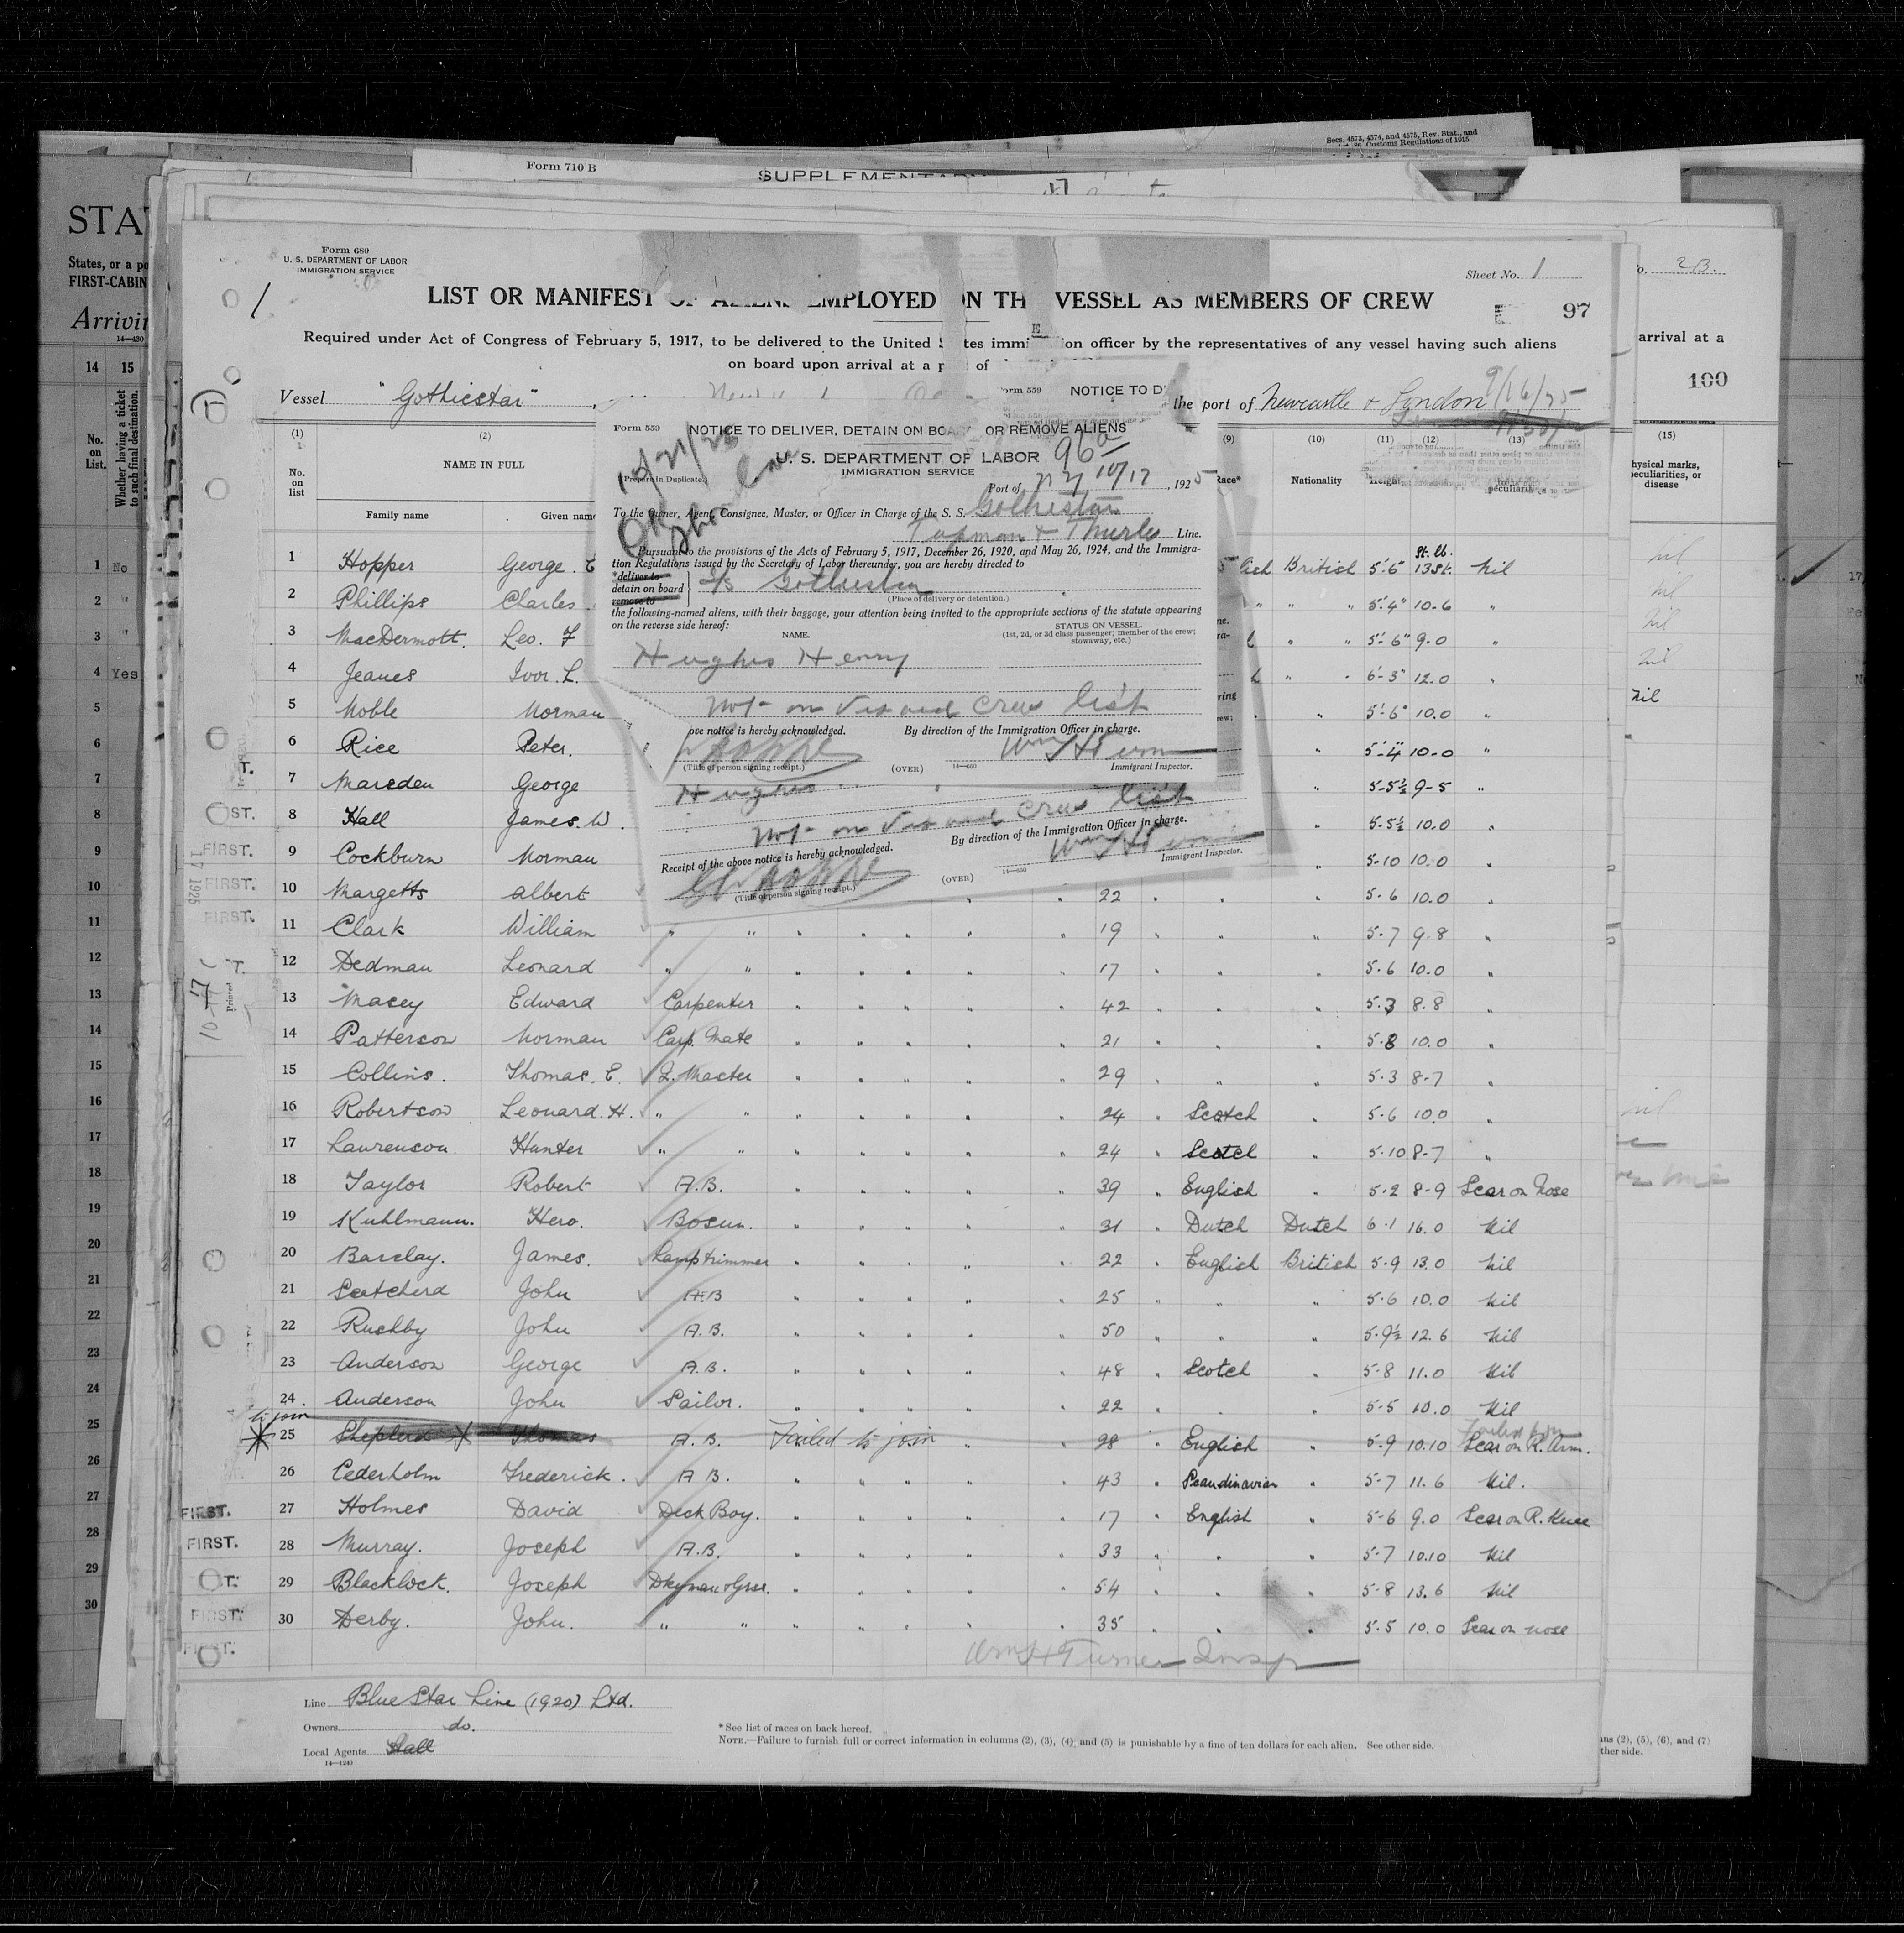 Secs. 4573, 4574, and 4575, Rev. Stat., and
Customs Regulations of 1915
Form 710 B
SUPPLEMENTARY
STA
States, or a po
FIRST-CABIN
Arrivin
14—430
14 15
No. on List.
Whether having a ticket to such final destination.
1 No
2 "
3 "
4 Yes
2B.
arrival at a
100
(15)
hysical marks,
peculiarities, or
disease
nil
Form 680
U. S. DEPARTMENT OF LABOR
IMMIGRATION SERVICE
Sheet No. 1
LIST OR MANIFEST OF ALIENS EMPLOYED ON THE VESSEL AS MEMBERS OF CREW
97
Required under Act of Congress of February 5, 1917, to be delivered to the United States immigration officer by the representatives of any vessel having such aliens
on board upon arrival at a port of
Vessel "Gothicstar"
the port of Newcastle & London 9/16/25
(1) (2) (9) (10) (11) (12) (13)
No. on list
NAME IN FULL
Family name Given name
Race* Nationality Height
Form 559 NOTICE TO D
Form 559 NOTICE TO DELIVER, DETAIN ON BOARD OR REMOVE ALIENS
U. S. DEPARTMENT OF LABOR 96a
IMMIGRATION SERVICE
(Prepare in Duplicate.)
Port of N Y 10/17, 1925
To the Owner, Agent, Consignee, Master, or Officer in Charge of the S. S. Gothicstar
Tapman & Thurlo Line.
Pursuant to the provisions of the Acts of February 5, 1917, December 26, 1920, and May 26, 1924, and the Immigra-
tion Regulations issued by the Secretary of Labor thereunder, you are hereby directed to
*deliver to
detain on board S/S Gothicstar
remove to
(Place of delivery or detention.)
the following-named aliens, with their baggage, your attention being invited to the appropriate sections of the statute appearing
on the reverse side hereof:
NAME. STATUS ON VESSEL.
(1st, 2d, or 3d class passenger; member of the crew; stowaway, etc.)
Hughes Henry
Not on Visaed Crew list
ove notice is hereby acknowledged. By direction of the Immigration Officer in charge.
Wm H Turner
(Title of person signing receipt.) (OVER) 14—660 Immigrant Inspector.
Hughes
Not on Visaed Crew list
Receipt of the above notice is hereby acknowledged. By direction of the Immigration Officer in charge.
Wm H Turner
(Title of person signing receipt.) (OVER) 14—660 Immigrant Inspector.
St. lb.
1 Hopper George E lish British 5'-6" 13 St. Nil
2 Phillips Charles " " " 5'-4" 10-6 "
3 MacDermott. Leo. F " " 5'-6" 9.0 "
4 Jeanes Ivor L. " " 6'-3" 12.0 "
5 Noble Norman " 5'-6" 10.0 "
6 Rice Peter. " 5'-4" 10-0 "
7 Marsden George " 5-5½ 9-5 "
8 Hall James. W. " 5-5½ 10.0 "
9 Cockburn Norman " 5-10 10.0 "
10 Margetts Albert 22 " " " 5-6 10.0 "
11 Clark William " " " " " " " 19 " " " 5-7 9.8 "
12 Dedman Leonard " " " " " " " 17 " " " 5.6 10.0 "
13 Macey Edward Carpenter " " " " " 42 " " " 5.3 8.8 "
14 Patterson Norman Carp. Mate " " " " " 21 " " " 5.8 10.0 "
15 Collins. Thomas. E. Q. Master " " " " " 29 " " " 5.3 8-7 "
16 Robertson Leonard. H. " " " " " " " 24 " Scotch " 5.6 10.0 "
17 Laurenson Hunter " " " " " " " 24 " Scotch " 5.10 8-7 "
18 Taylor Robert A.B. " " " " " 39 " English " 5-2 8-9 Scar on Nose
19 Kuhlmann. Hero. Bosun. " " " " " 31 " Dutch Dutch 6-1 16.0 Nil
20 Barclay. James. Lamptrimmer " " " " " 22 " English British 5-9 13.0 Nil
21 Scatcherd John A.B " " " " " 25 " " " 5-6 10.0 Nil
22 Rushby John A.B. " " " " " 50 " " " 5-9½ 12.6 Nil
23 Anderson George A.B. " " " " " 48 " Scotch " 5-8 11.0 Nil
24. Anderson John Sailor. " " " " " 22 " " " 5-5 10.0 Nil
25 Shepherd Thomas A.B. Failed to join " " 28 " English " 5-9 10.10 Scar on R. Arm.
26 Cederholm Frederick. A B. " " " " " 43 " Scandinavian " 5-7 11.6 Nil.
27 Holmes David Deck Boy. " " " " " 17 " English " 5-6 9.0 Scar on R. Knee
28 Murray. Joseph A.B. " " " " " 33 " " " 5-7 10.10 Nil
29 Blacklock. Joseph Dkyman & Grsr. " " " " " 54 " " " 5-8 13.6 Nil
30 Derby. John. " " " " " " " 35 " " " 5.5 10.0 Scar on nose
FIRST.
Wm H Turner Insp
Line Blue Star Line (1920) Ltd.
Owners do.
Local Agents
14—1240
*See list of races on back hereof.
NOTE.—Failure to furnish full or correct information in columns (2), (3), (4), and (5) is punishable by a fine of ten dollars for each alien. See other side.
ns (2), (5), (6), and (7)
ther side.